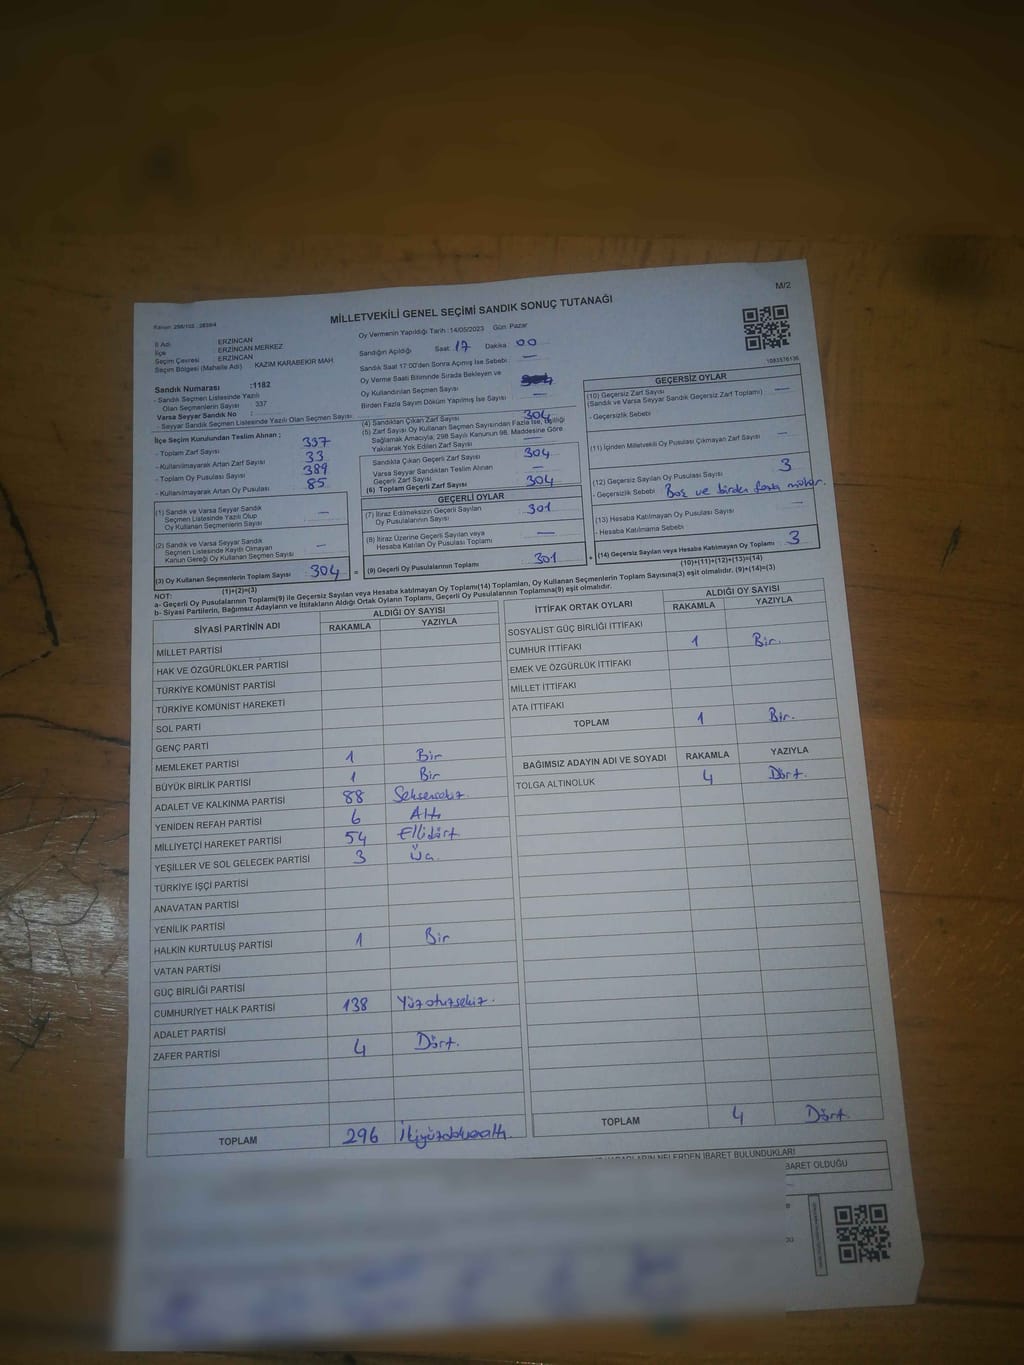 M/2
MİLLETVEKİLİ GENEL SEÇİMİ SANDIK SONUÇ TUTANAĞI
Oy Vermenin Yapıldığı Tarih :14/05/2023 Gün: Pazar
İl Adı : ERZİNCAN
İlçe : ERZİNCAN MERKEZ
Seçim Çevresi : ERZİNCAN
Seçim Bölgesi (Mahalle Adı) : KAZIM KARABEKİR MAH.
Sandık Numarası :1182
- Sandık Seçmen Listesinde Yazılı
Olan Seçmenlerin Sayısı : 337
Varsa Seyyar Sandık No :
- Seyyar Sandık Seçmen Listesinde Yazılı Olan Seçmen Sayısı:
İlçe Seçim Kurulundan Teslim Alınan ;
- Toplam Zarf Sayısı 337
- Kullanılmayarak Artan Zarf Sayısı 33
- Toplam Oy Pusulası Sayısı 389
- Kullanılmayarak Artan Oy Pusulası 85
(1) Sandık ve Varsa Seyyar Sandık
Seçmen Listesinde Yazılı Olup
Oy Kullanan Seçmenlerin Sayısı —
(2) Sandık ve Varsa Seyyar Sandık
Seçmen Listesinde Kayıtlı Olmayan
Kanun Gereği Oy Kullanan Seçmen Sayısı —
(3) Oy Kullanan Seçmenlerin Toplam Sayısı 304
(1)+(2)=(3)
Sandığın Açıldığı Saat 17 Dakika 00
Sandık Saat 17:00'den Sonra Açılmış İse Sebebi —
Oy Verme Saati Bitiminde Sırada Bekleyen ve
Oy Kullandırılan Seçmen Sayısı
Birden Fazla Sayım Döküm Yapılmış İse Sayısı —
(4) Sandıktan Çıkan Zarf Sayısı 304
(5) Zarf Sayısı Oy Kullanan Seçmen Sayısından Fazla İse, Eşitliği
Sağlamak Amacıyla, 298 Sayılı Kanunun 98. Maddesine Göre
Yakılarak Yok Edilen Zarf Sayısı —
Sandıkta Çıkan Geçerli Zarf Sayısı 304
Varsa Seyyar Sandıktan Teslim Alınan
Geçerli Zarf Sayısı —
(6) Toplam Geçerli Zarf Sayısı 304
GEÇERLİ OYLAR
(7) İtiraz Edilmeksizin Geçerli Sayılan
Oy Pusulalarının Sayısı 301
(8) İtiraz Üzerine Geçerli Sayılan veya
Hesaba Katılan Oy Pusulası Toplamı —
(9) Geçerli Oy Pusulalarının Toplamı 301
GEÇERSİZ OYLAR
(10) Geçersiz Zarf Sayısı
(Sandık ve Varsa Seyyar Sandık Geçersiz Zarf Toplamı) —
- Geçersizlik Sebebi
(11) İçinden Milletvekili Oy Pusulası Çıkmayan Zarf Sayısı —
(12) Geçersiz Sayılan Oy Pusulası Sayısı 3
- Geçersizlik Sebebi Boş ve birden fazla mühür.
(13) Hesaba Katılmayan Oy Pusulası Sayısı —
- Hesaba Katılmama Sebebi
(14) Geçersiz Sayılan veya Hesaba Katılmayan Oy Toplamı 3
(10)+(11)+(12)+(13)=(14)
NOT:
a- Geçerli Oy Pusulalarının Toplamı(9) ile Geçersiz Sayılan veya Hesaba katılmayan Oy Toplamı(14) Toplamları, Oy Kullanan Seçmenlerin Toplam Sayısına(3) eşit olmalıdır. (9)+(14)=(3)
b- Siyasi Partilerin, Bağımsız Adayların ve İttifakların Aldığı Ortak Oyların Toplamı, Geçerli Oy Pusulalarının Toplamına(9) eşit olmalıdır.
SİYASİ PARTİNİN ADI ALDIĞI OY SAYISI
RAKAMLA YAZIYLA
MİLLET PARTİSİ
HAK VE ÖZGÜRLÜKLER PARTİSİ
TÜRKİYE KOMÜNİST PARTİSİ
TÜRKİYE KOMÜNİST HAREKETİ
SOL PARTİ
GENÇ PARTİ
MEMLEKET PARTİSİ 1 Bir
BÜYÜK BİRLİK PARTİSİ 1 Bir
ADALET VE KALKINMA PARTİSİ 88 Seksensekiz.
YENİDEN REFAH PARTİSİ 6 Altı
MİLLİYETÇİ HAREKET PARTİSİ 54 Ellidört
YEŞİLLER VE SOL GELECEK PARTİSİ 3 Üç.
TÜRKİYE İŞÇİ PARTİSİ
ANAVATAN PARTİSİ
YENİLİK PARTİSİ
HALKIN KURTULUŞ PARTİSİ 1 Bir
VATAN PARTİSİ
GÜÇ BİRLİĞİ PARTİSİ
CUMHURİYET HALK PARTİSİ 138 Yüzotuzsekiz.
ADALET PARTİSİ
ZAFER PARTİSİ 4 Dört.
TOPLAM 296 İkiyüzdoksanaltı.
İTTİFAK ORTAK OYLARI ALDIĞI OY SAYISI
RAKAMLA YAZIYLA
SOSYALİST GÜÇ BİRLİĞİ İTTİFAKI
CUMHUR İTTİFAKI 1 Bir.
EMEK VE ÖZGÜRLÜK İTTİFAKI
MİLLET İTTİFAKI
ATA İTTİFAKI
TOPLAM 1 Bir.
BAĞIMSIZ ADAYIN ADI VE SOYADI RAKAMLA YAZIYLA
TOLGA ALTINOLUK 4 Dört.
TOPLAM 4 Dört.
NELERDEN İBARET BULUNDUKLARI
BARET OLDUĞU